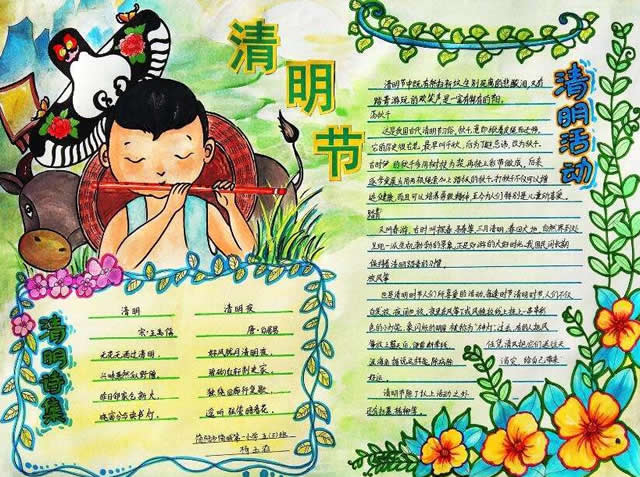 清明节
清明诗集
清明
宋·王禹偁
无花无酒过清明,
兴味萧然似野僧。
昨日邻家乞新火,
晓窗分与读书灯。
清明夜
唐·白居易
好风胧月清明夜,
碧砌红轩刺史家。
独绕回廊行复歇,
遥听弦管暗看花。
清明活动
清明节中既有祭扫新坟生别死离的悲酸泪,又有
踏青游玩的欢笑声是一富有特色的节日。
荡秋千
这是我国古代清明节习俗。秋千,意即揪着皮绳而迁移。
它的历史很古老,最早叫千秋,后为了避忌讳,改为秋千。
古时的秋千多用树桠为架,再拴上彩带做成,后来
逐步发展为用两根绳索加上踏板的秋千。打秋千不仅可以增
进健康,而且可以培养勇敢精神,至今为人们特别是儿童所喜爱。
踏青
又叫春游。古时叫探春、寻春等。三月清明,春回大地,自然界到处
呈现一派生机勃勃的景象,正是郊游的大好时光。我国民间长期
保持着清明踏青的习惯。
放风筝
也是清明时节人们所喜爱的活动。每逢清明时节,人们不仅
白天放,夜间也放。夜里在风筝下或风稳拉线上挂上一串串彩
色的小灯笼,象闪烁的明星,被称为“神灯”。过去,有的人把风
筝放上蓝天后,便剪断牵线,任凭清风把它们送往天
涯海角,据说这样能除病消灾,给自己带来
好运。
清明节除了以上活动之外